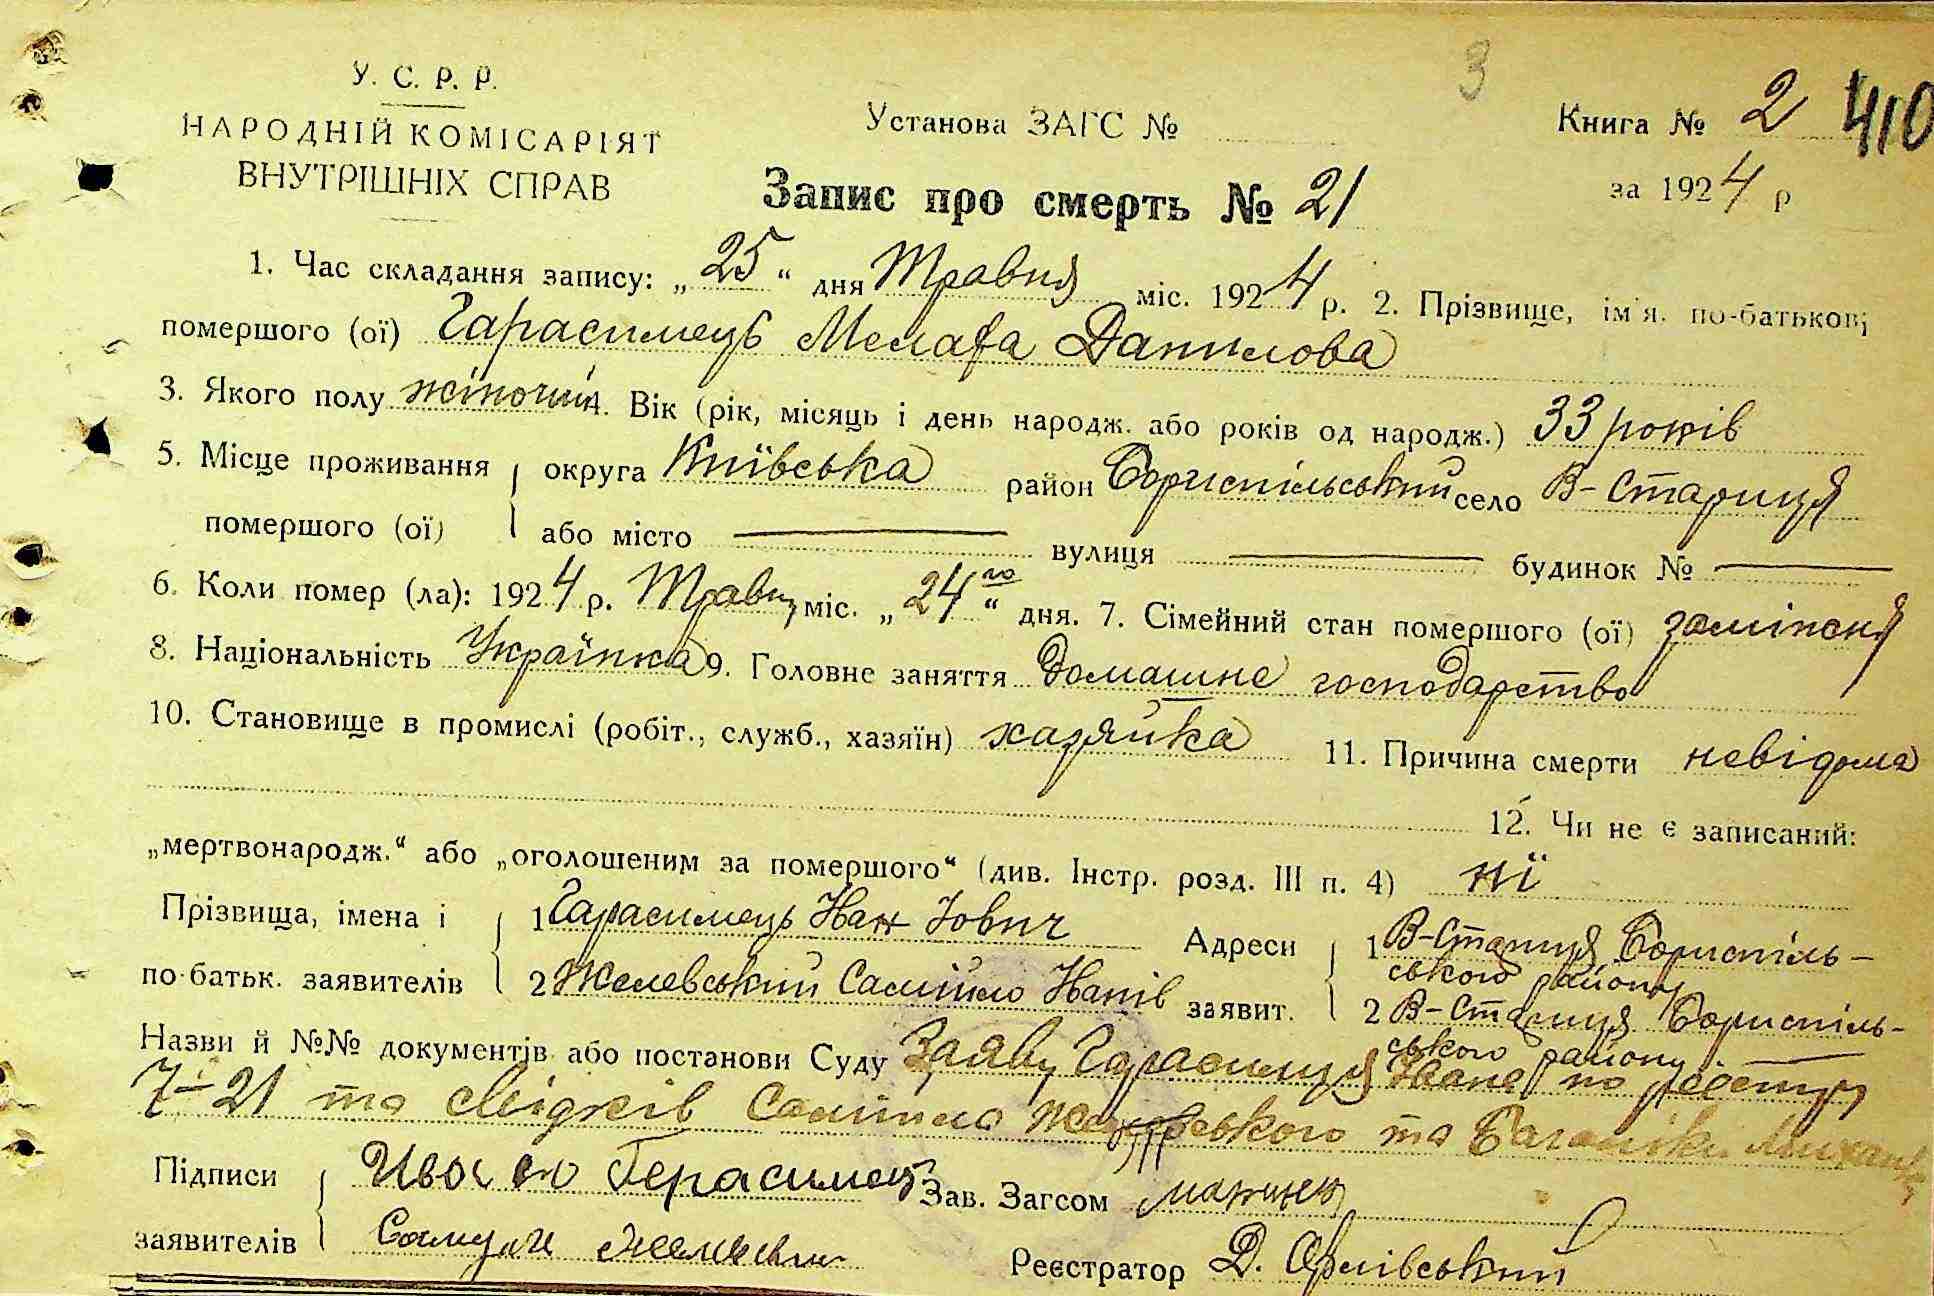 3
Книга № 2 410
У. С. Р. Р.
НАРОДНІЙ КОМІСАРІЯТ
ВНУТРІШНІХ СПРАВ
Установа ЗАГС №
за 1924 р
Запис про смерть № 21
1. Час складання запису: „25“ дня Травня міс. 1924 р. 2. Прізвище, ім'я. по-батькові
помершого (ої) Гарасимець Мелафа Данилова
3. Якого полу жіночий 4. Вік (рік, місяць і день народж. або років од народж.) 33 років
5. Місце проживання округа Київська район Бориспільський село В-Стариця
помершого (ої) або місто — вулиця — будинок № —
6. Коли помер (ла): 1924 р. Травня міс. „24го“ дня. 7. Сімейний стан помершого (ої) заміжня
8. Національність Українка 9. Головне заняття Домашнє господарство
10. Становище в промислі (робіт., служб., хазяїн) хазяйка 11. Причина смерти невідома
12. Чи не є записаний:
„мертвонародж.“ або „оголошеним за помершого“ (див. Інстр. розд. III п. 4) ні
Прізвища, імена і 1 Гарасимець Іван Іович Адреси 1 В-Стариця Бориспіль-
ського району
по-батьк. заявителів 2 Желевський Самійло Іванів заявит. 2 В-Стариця Бориспіль-
ського району —
Назви й №№ документів або постанови Суду Заяву Гарасимця Івана по реєстру
7-21 та свідків Самійла та Михайла
Підписи Герасимец Зав. Загсом
заявителів Реєстратор Д.